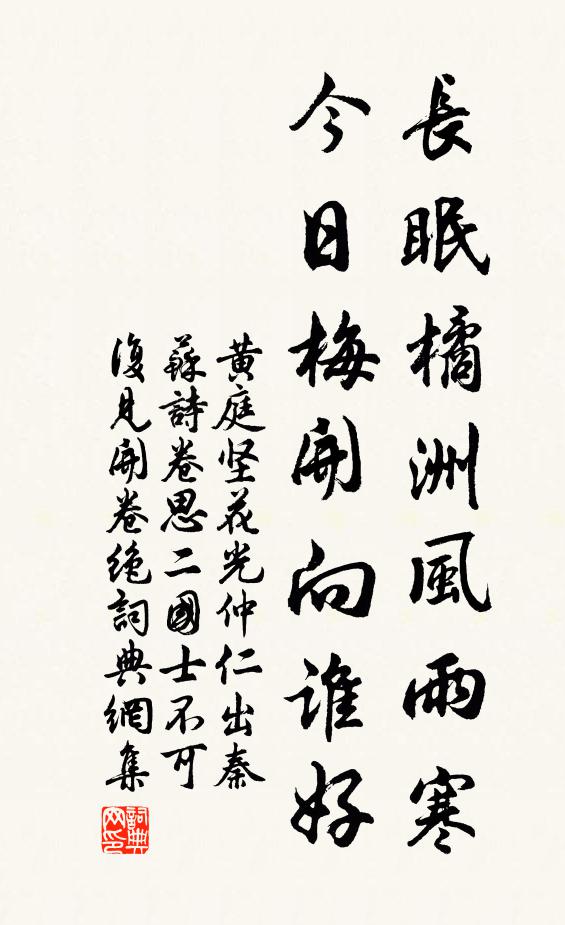 長眠橘洲風雨寒
今日梅開向誰好
黄庭坚花光仲仁出秦
蘇詩卷思二國士不可
復見開卷絶詞典網集
詞典网印